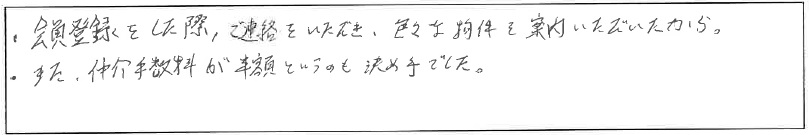 ・会員登録をした際，ご連絡をいただき、色々な物件を案内いただいたから。
・また、仲介手数料が半額というのも決め手でした。